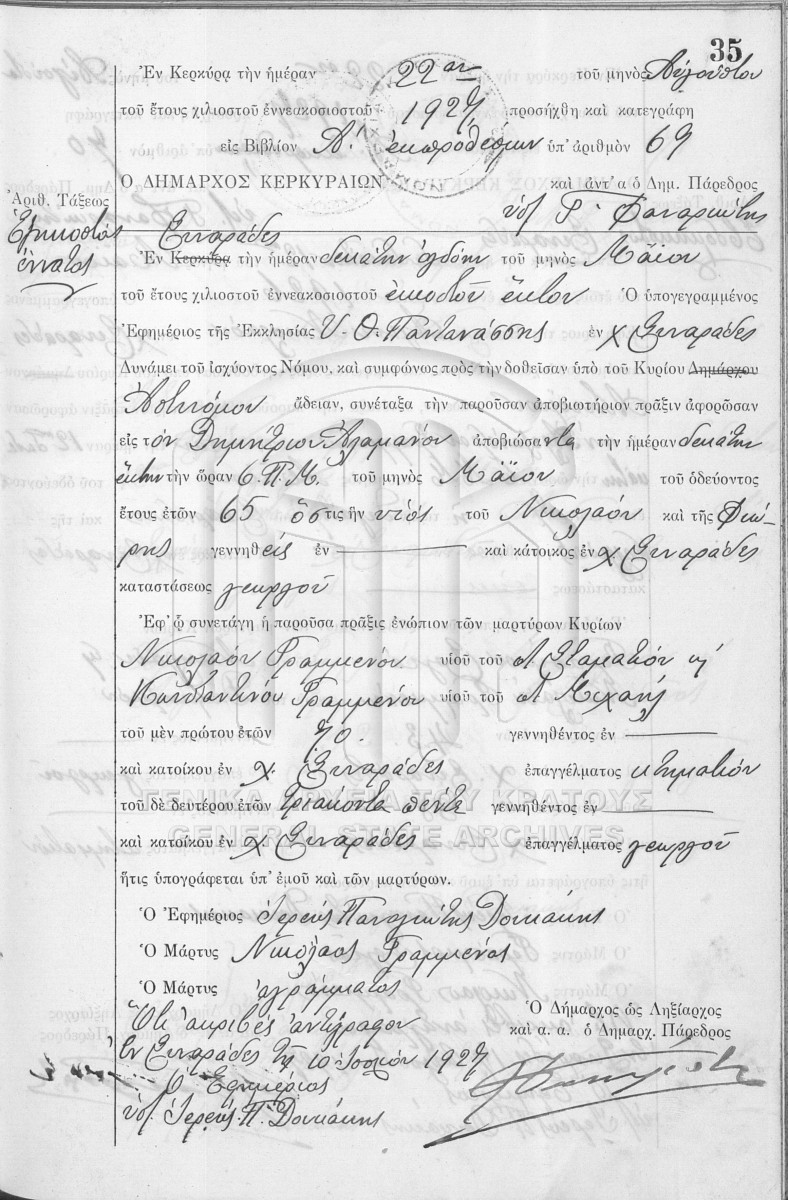 35
Ἐν Κερκύρᾳ τὴν ἡμέραν 22αν τοῦ μηνὸς Αὐγούστου
τοῦ ἔτους χιλιοστοῦ ἐννεακοσιοστοῦ 1927 προσήχθη καὶ κατεγράφη
εἰς Βιβλίον Α! ἐκπροθέσμων ὑπ' ἀριθμὸν 69
Ο ΔΗΜΑΡΧΟΣ ΚΕΡΚΥΡΑΙΩΝ καὶ ἀντ' α ὁ Δημ. Πάρεδρος
Ἀριθ. Τάξεως
Εἰκοστὸς
ἔννατος
Σιναράδες
Ἐν Κερκύρᾳ τὴν ἡμέραν δεκάτην ὀγδόην τοῦ μηνὸς Μαΐου
τοῦ ἔτους χιλιοστοῦ ἐννεακοσιοστοῦ εἰκοστοῦ ἕκτου Ὁ ὑπογεγραμμένος
Ἐφημέριος τῆς Ἐκκλησίας Υ. Θ. Παντανάσσης ἐν χ Σιναράδες
Δυνάμει τοῦ ἰσχύοντος Νόμου, καὶ συμφώνως πρὸς τὴν δοθεῖσαν ὑπὸ τοῦ Κυρίου Δημάρχου
Ἀστυνόμου ἄδειαν, συνέταξα τὴν παροῦσαν ἀποβιωτήριον πρᾶξιν ἀφορῶσαν
εἰς τὸν Δημήτριον Ἀλαμάνον ἀποβιώσαντα τὴν ἡμέραν δεκάτην
ἕκτην τὴν ὥραν 6 Π.Μ. τοῦ μηνὸς Μαΐου τοῦ ὁδεύοντος
ἔτους ἐτῶν 65 ὅστις ἦν υἱὸς τοῦ Νικολάου καὶ τῆς
γεννηθεὶς ἐν καὶ κάτοικος ἐν χ Σιναράδες
καταστάσεως γεωργοῦ
Ἐφ' ᾧ συνετάγη ἡ παροῦσα πρᾶξις ἐνώπιον τῶν μαρτύρων Κυρίων
Νικολάου Γραμμένου υἱοῦ τοῦ Σταματίου κ
Κωνσταντίνου Γραμμένου υἱοῦ τοῦ Μιχαήλ
τοῦ μὲν πρώτου ἐτῶν 70. γεννηθέντος ἐν
καὶ κατοίκου ἐν χ. Σιναράδες ἐπαγγέλματος κτηματίου
τοῦ δὲ δευτέρου ἐτῶν τριάκοντα πέντε γεννηθέντος ἐν
ΓΕΝΙΚΑ ΑΡΧΕΙΑ ΤΟΥ ΚΡΑΤΟΥΣ
GENERAL STATE ARCHIVES
καὶ κατοίκου ἐν χ Σιναράδες ἐπαγγέλματος γεωργοῦ
ἥτις ὑπογράφεται ὑπ' ἐμοῦ καὶ τῶν μαρτύρων.
Ὁ Ἐφημέριος Ἱερεὺς Παναγιώτης Δουκάκης
Ὁ Μάρτυς Νικόλαος Γραμμένος
Ὁ Μάρτυς ἀγράμματος
Ὅτι ἀκριβὲς ἀντίγραφον
Ἐν Σιναράδες τῇ 10 1927
Ὁ Ἐφημέριος
Ἱερεὺς Π. Δουκάκης
Ὁ Δήμαρχος ὡς Ληξίαρχος
καὶ α. α. ὁ Δημαρχ. Πάρεδρος